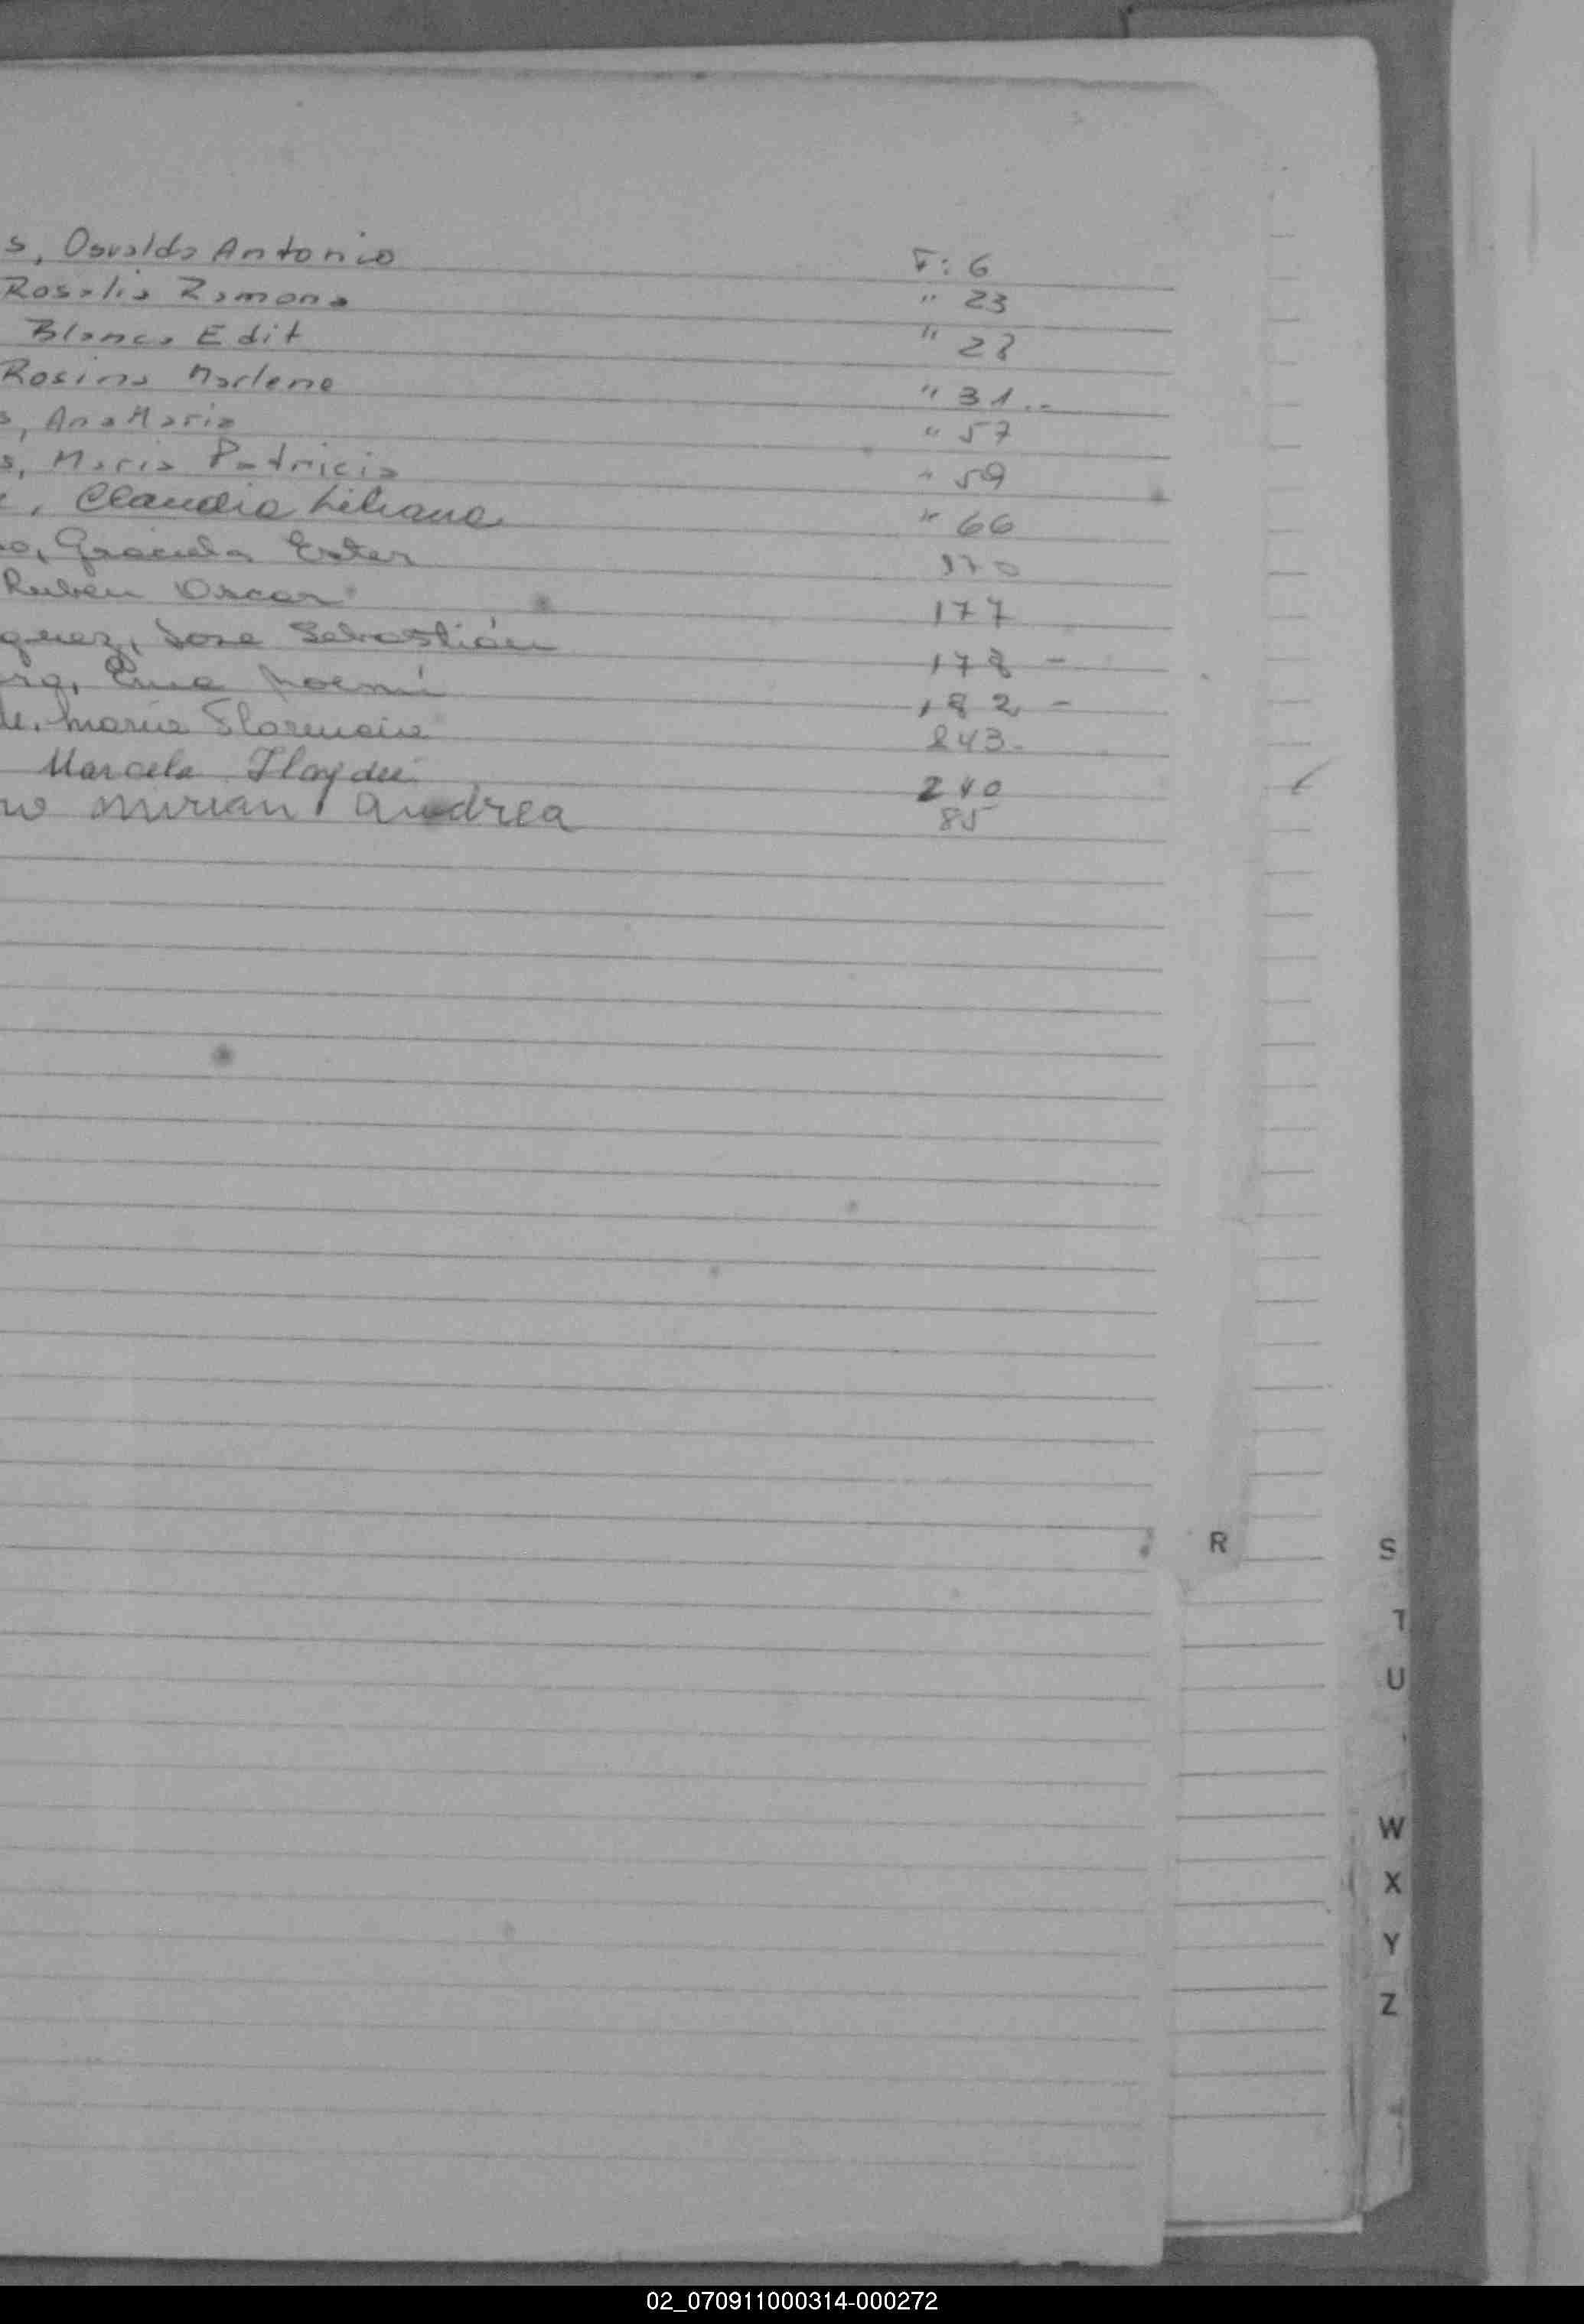 s, Osvaldo Antonio F: 6
Rosalia Ramona " 23
Blanca Edit " 28
Rosina Marlene " 31..
s, Ana Maria " 57
s, Maria Patricia " 59
, Claudia Liliana " 66
o, Graciela Ester 170
Ruben Oscar 177
quez, Jose Sebastián 178 -
rg, Noemí 182 -
Maria Florencia 243.
Marcela Haydeé 240
Mirian Andrea 85
R
S
T
U
W
X
Y
Z
02_070911000314-000272